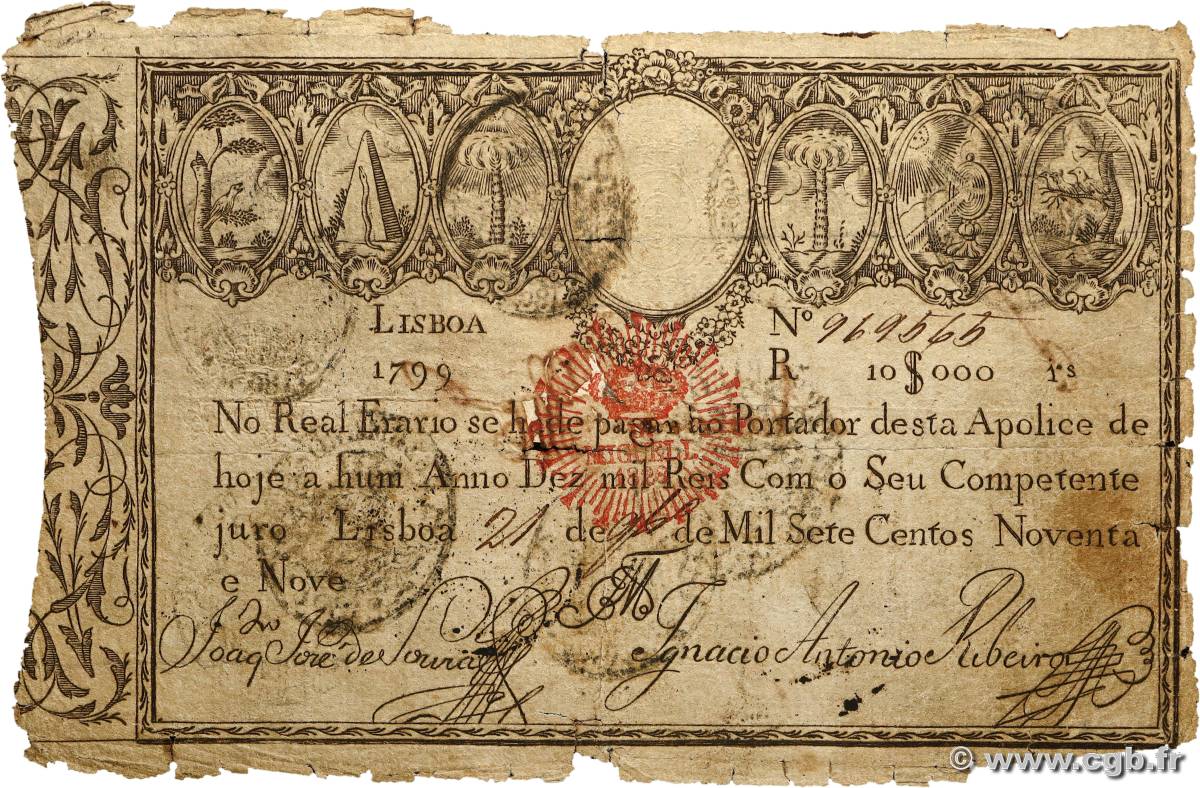 LISBOA Nº 969565
1799 R 10$000 rs
No Real Erario se ha de pagar ao Portador desta Apolice de
hoje a hum Anno Dez mil Reis Com o Seu Competente
juro Lisboa 21 de de Mil Sete Centos Noventa
e Nove
Joaq Joze de Souza Ignacio Antonio Ribeiro
© www.cgb.fr